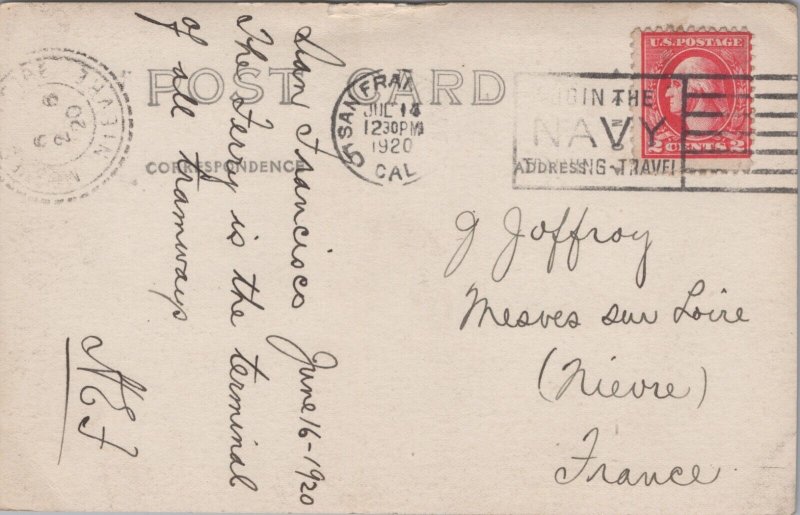 POST CARD
CORRESPONDENCE
ADDRESS
San Francisco June 16-1920
The Ferry is the terminal
of all tramways
NEJ
SAN FRAN
JUL 14
1230PM
1920
CAL
JOIN THE
NAVY
TRAVEL
U.S. POSTAGE
2 CENTS 2
NIEVRE
20
G Joffroy
Mesves sur Loire
(Nievre)
France